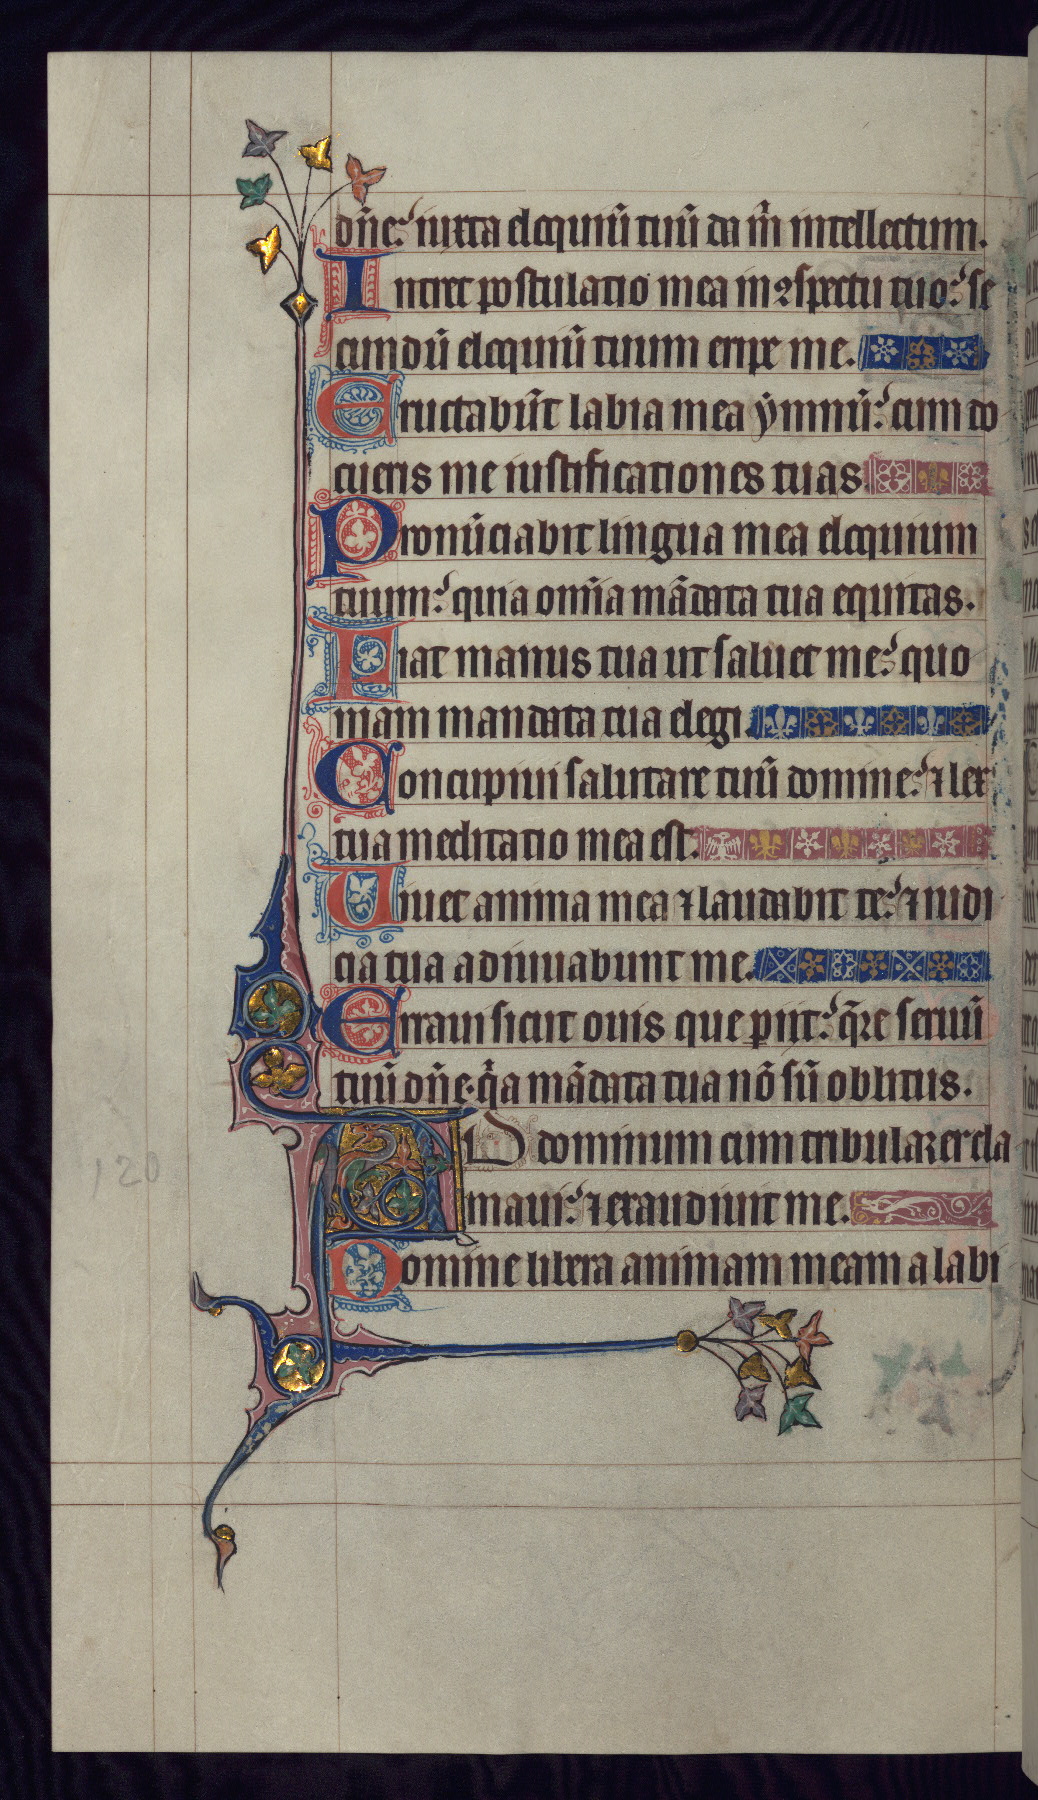 dn̄e: iuxta eloquiū tuū da m̄ intellectum.
Intret postulatio mea in ꝯspectu tuo: se
cundū eloquiū tuum eripe me.
Eructabūt labia mea ẏmnū: cum do
cueris me iustificationes tuas.
Pronūciabit lingua mea eloquium
tuum: quia om̄ia mādata tua equitas.
Fiat manus tua ut saluet me: quo
niam mandata tua elegi.
Concupiui salutare tuū domine: ⁊ lex
tua meditatio mea est.
Uiuet anima mea ⁊ laudabit te: ⁊ iudi
cia tua adiuuabunt me.
Erraui sicut ouis que periit: q̄re seruū
tuū dn̄e. qͥa mādata tua nō sū oblitus.
AD dominum cum tribularer cla
maui: ⁊ exaudiuit me.
Domine libera animam meam a labi
120